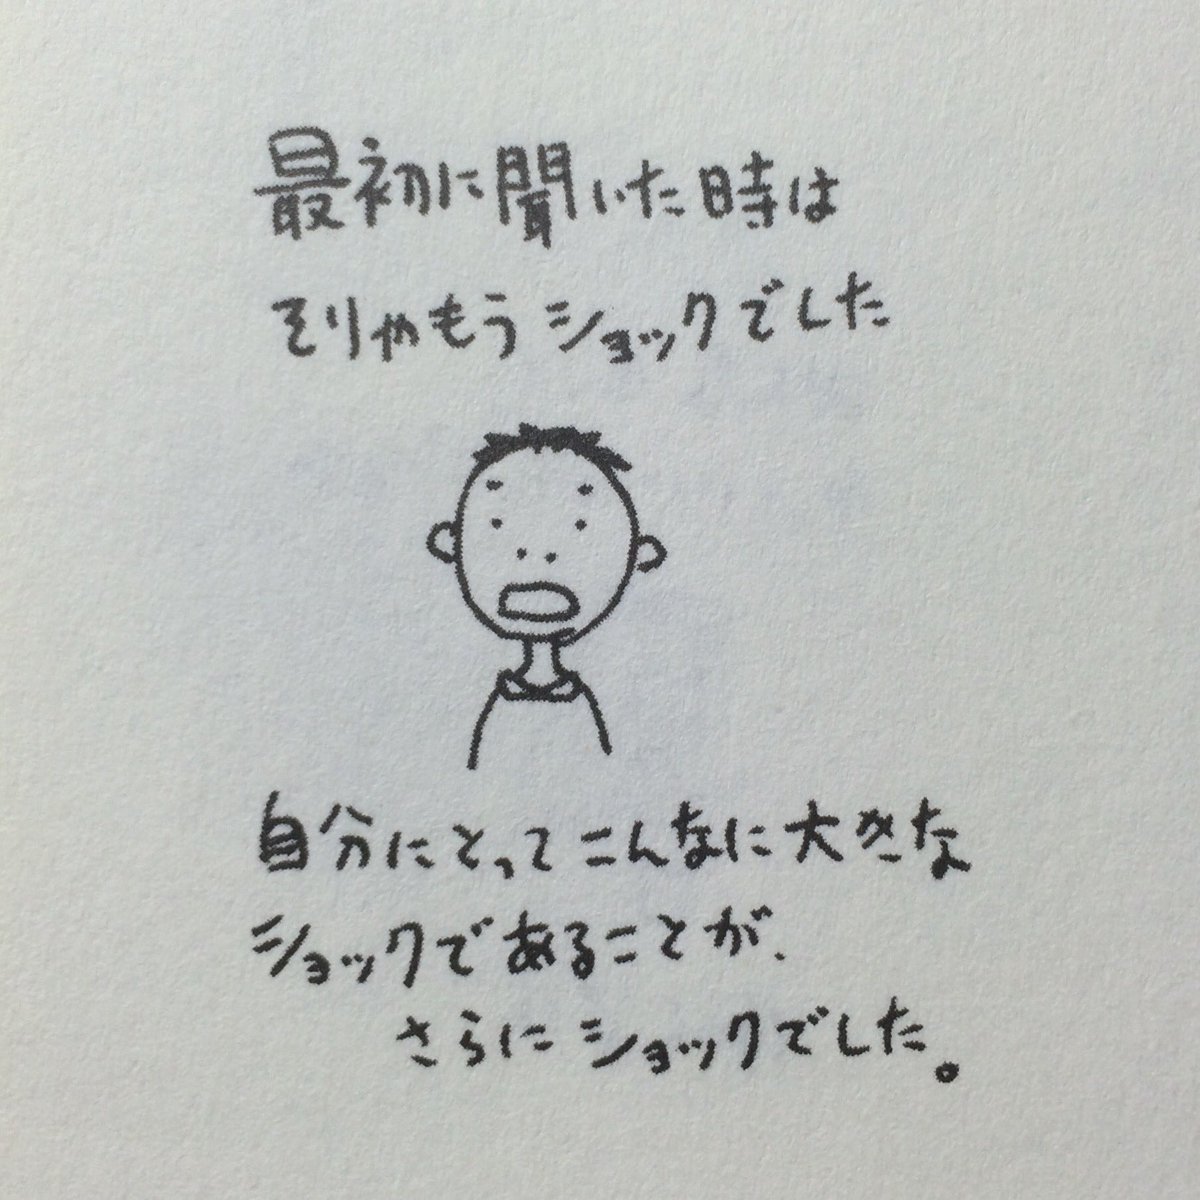 最初に聞いた時は
そりゃもうショックでした
自分にとってこんなに大きな
ショックであることが、
さらにショックでした。